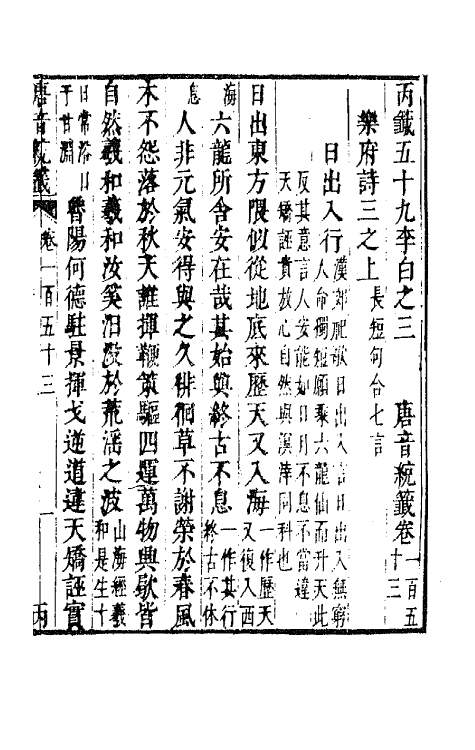 丙籤五十九李白之三　唐音統籤卷一百五十三
樂府詩三之上長短句合七言
日出入行漢郊祀歌日出入言日出入無窮人命獨短願乘六龍仙而升天此反其意言人安能如日月不息不當違天矯誣貴放心自然與溟涬同科也
日出東方隈似從地底來歷天又入海一作歷天又復入西海六龍所舍安在哉其始與終古不息一作其行終古不休息人非元氣安得與之久徘徊草不謝榮於春風
木不怨落於秋天誰揮鞭策驅四運萬物興歇皆
自然羲和羲和汝奚汨沒於荒淫之波山海經羲和是生十日常浴日于甘淵魯陽何德駐景揮戈逆道違天矯誣實
唐音統籤 卷一百五十三 一 丙